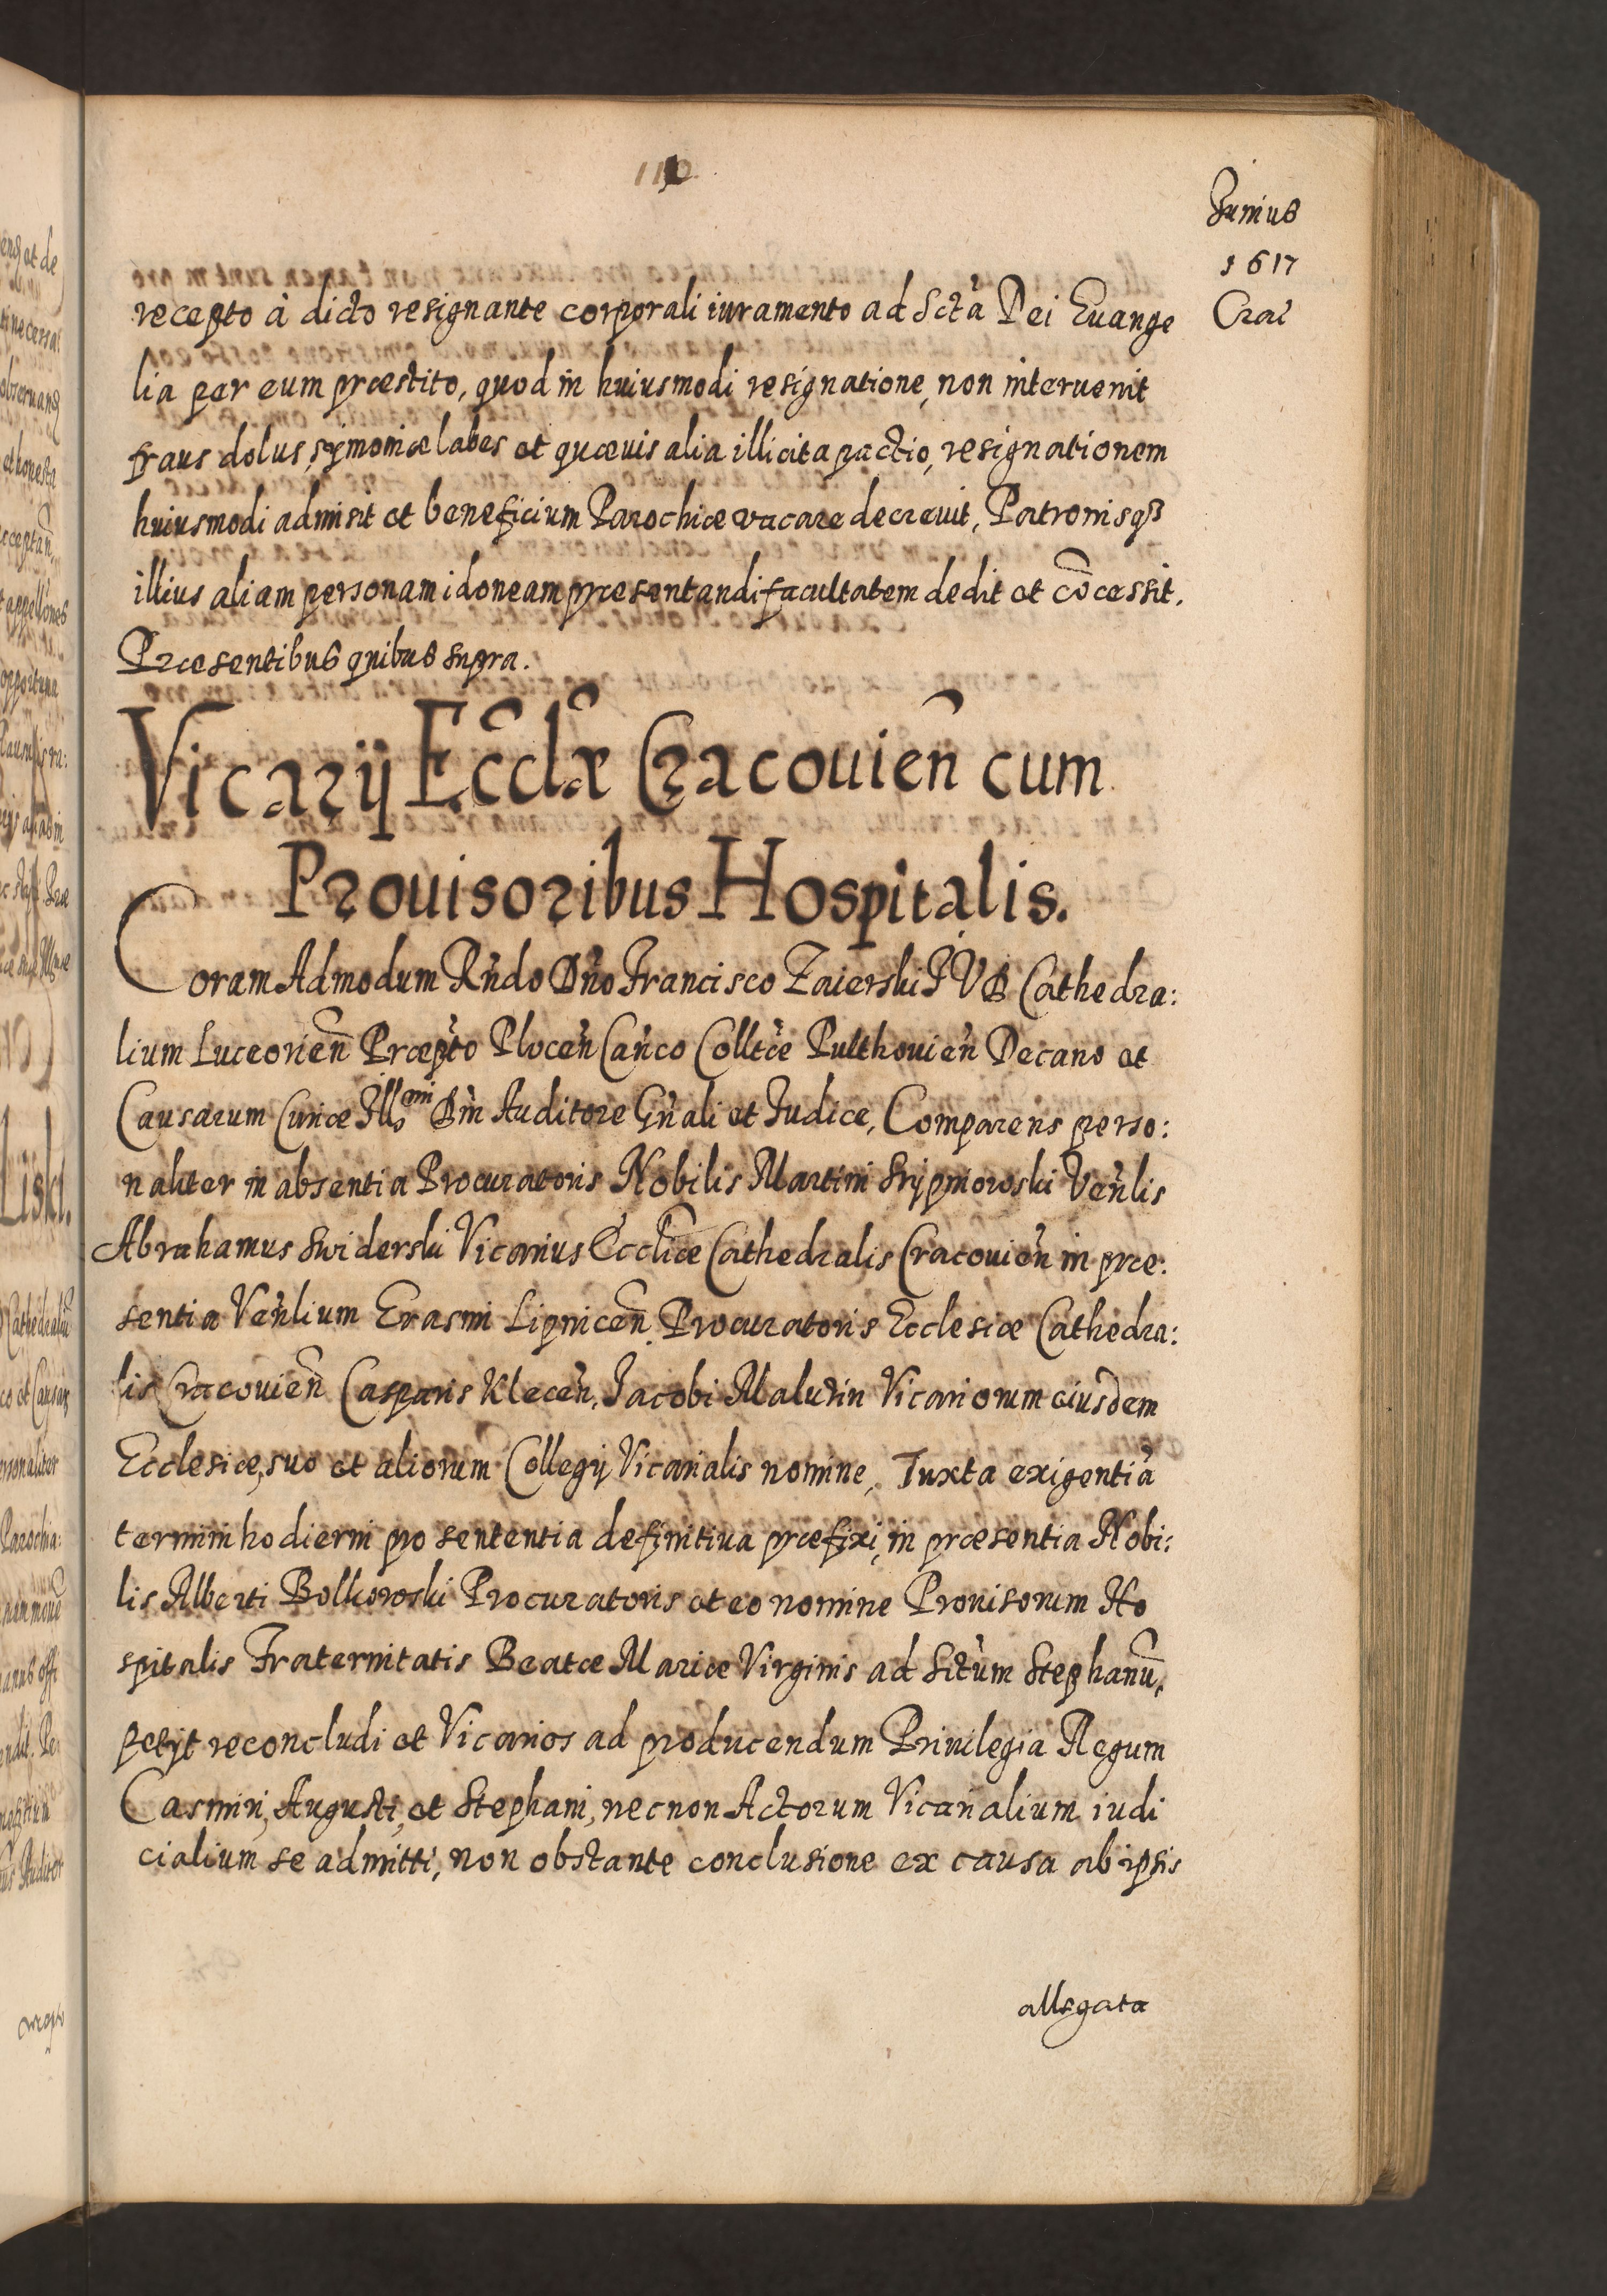 110
Junius
1617
Crac̀
recepto à dicto resignante corporali iuramento ad Sctà Dei Euange
lia per eum præstito, quod in huiusmodi resignatione, non interuenit
fraus dolus, symoniæ labes et quæuis alia illicita pactio, resignationem
huiusmodi admisit et beneficium Parochiæ vacare decreuit, Patronisqʒ
illius aliam personam idoneam præsentandi facultatem dedit et cōcessit.
Præsentibus quibus supra.
Vicarij Eccl̃æ Cracouieñ cum
Prouisoribus Hospitalis.
Coram Admodum Rǹdo Dǹo Francisco Zaierski J V D Cathedra:
lium Luceorieñ Præpt̀o Ploceǹ Caǹco Colltæ̀ Pulthouieǹ Decano et
Causarum Curiæ Illmi Dǹi Auditore Gǹali et Judice, Comparens perso:
naliter in absentia Procuratoris Nobilis Martini Srypniowski Veǹlis
Abrahamus Swiderski Vicarius Eccliæ Cathedralis Cracouieǹ in præ:
sentia Veǹlium Erasmi Lipniceñ Procuratoris Ecclesiæ Cathedra:
lis Cracouieñ Casparis Kleceǹ, Jacobi Malutin Vicariorum eiusdem
Ecclesiæ, suo et aliorum Collegij Vicarialis nomine, Juxta exigentià
termini hodierni pro sententia definitiua præfixi, in præsentia Nobi:
lis Alberti Bolkowski Procuratoris et eo nomine Prouisorum Ho
spitalis Fraternitatis Beatæ Mariæ Virginis ad Sct̀um Stephanū,
petyt reconcludi et Vicarios ad producendum Priuilegia Regum
Casimiri, Augusti, et Stephani, necnon Actorum Vicarialium iudi
cialium se admitti, non obstante conclusione ex causa ab ipsis
allegata